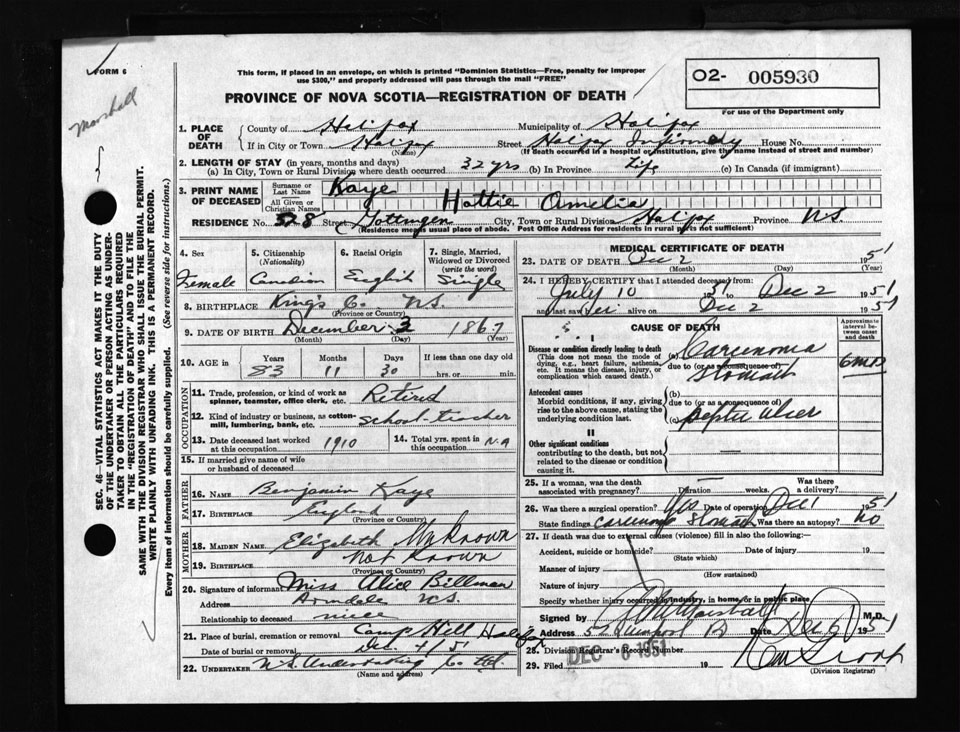 FORM 6
Marshall
This form, if placed in an envelope, on which is printed "Dominion Statistics—Free, penalty for improper
use $300," and properly addressed will pass through the mail "FREE"
O2- 005930
For use of the Department only
PROVINCE OF NOVA SCOTIA—REGISTRATION OF DEATH
SEC. 46—VITAL STATISTICS ACT MAKES IT THE DUTY
OF THE UNDERTAKER OR PERSON ACTING AS UNDER-
TAKER TO OBTAIN ALL THE PARTICULARS REQUIRED
IN THE "REGISTRATION OF DEATH" AND TO FILE THE
SAME WITH THE DIVISION REGISTRAR WHO SHALL ISSUE THE BURIAL PERMIT.
WRITE PLAINLY WITH UNFADING INK. THIS IS A PERMANENT RECORD.
Every item of information should be carefully supplied. (See reverse side for instructions.)
1. PLACE OF DEATH County of Halifax Municipality of Halifax
If in City or Town Halifax Street Halifax Infirmary House No.
(Name) (If death occurred in a hospital or institution, give the name instead of street and number)
2. LENGTH OF STAY (in years, months and days)
(a) In City, Town or Rural Division where death occurred 32 yrs (b) In Province Life (c) In Canada (if immigrant)
3. PRINT NAME OF DECEASED Surname or Last Name Kaye
All Given or Christian Names Hattie Amelia
RESIDENCE No. 28 Street Gottingen City, Town or Rural Division Halifax Province N.S.
(Residence means usual place of abode. Post Office Address for residents in rural parts not sufficient)
4. Sex Female
5. Citizenship (Nationality) Canadian
6. Racial Origin English
7. Single, Married, Widowed or Divorced (write the word) Single
8. BIRTHPLACE King's Co. N.S.
(Province or Country)
9. DATE OF BIRTH December 3 1867
(Month) (Day) (Year)
10. AGE in Years Months Days If less than one day old
83 11 30 hrs. or min.
OCCUPATION
11. Trade, profession, or kind of work as
spinner, teamster, office clerk, etc. Retired
12. Kind of industry or business, as cotton-
mill, lumbering, bank, etc. School-teacher
13. Date deceased last worked
at this occupation 1910
14. Total yrs. spent in
this occupation N.A
15. If married give name of wife
or husband of deceased
FATHER
16. NAME Benjamin Kaye
17. BIRTHPLACE England
(Province or Country)
MOTHER
18. MAIDEN NAME Elizabeth Unknown
19. BIRTHPLACE Not Known
(Province or Country)
20. Signature of informant Miss Alice Billman
Address N.S.
Relationship to deceased niece
21. Place of burial, cremation or removal Camp Hill Halifax
Date of burial or removal Dec. 4/51
22. UNDERTAKER N.S. Undertaking Co. Ltd.
(Name and address)
MEDICAL CERTIFICATE OF DEATH
23. DATE OF DEATH Dec 2 1951
(Month) (Day) (Year)
24. I HEREBY CERTIFY that I attended deceased from
July 10 1951 to Dec 2 1951
and last saw her alive on Dec 2 1951
CAUSE OF DEATH
Approximate
interval be-
tween onset
and death
I
Disease or condition directly leading to death
(This does not mean the mode of
dying, e.g., heart failure, asthenia,
etc. It means the disease, injury, or
complication which caused death.)
(a) Carcinoma
due to (or as a consequence of)
Stomach
6 mos
Antecedent causes
Morbid conditions, if any, giving
rise to the above cause, stating the
underlying condition last.
(b)
due to (or as a consequence of)
(c) Peptic Ulcer
II
Other significant conditions
contributing to the death, but not
related to the disease or condition
causing it.
25. If a woman, was the death
associated with pregnancy? Duration weeks. Was there
a delivery?
26. Was there a surgical operation? Yes Date of operation Dec 1 1951
State findings Carcinoma Stomach Was there an autopsy? No
27. If death was due to external causes (violence) fill in also the following:—
Accident, suicide or homicide? Date of injury 19
(State which)
Manner of injury
(How sustained)
Nature of injury
Specify whether injury occurred in industry, in home, or in public place
Signed by Marshall M.D.
Address Date Dec 1951
28. Division Registrar's Record Number
DEC 6 1951
29. Filed 19
(Division Registrar)